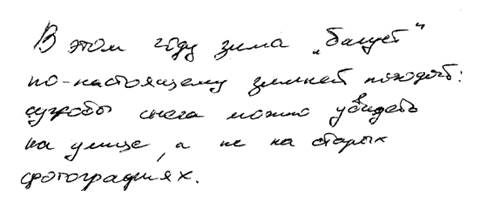 В этом году зима „балует“
по-настоящему зимней погодой:
сугробы снега можно увидеть
на улице, а не на старых
фотографиях.